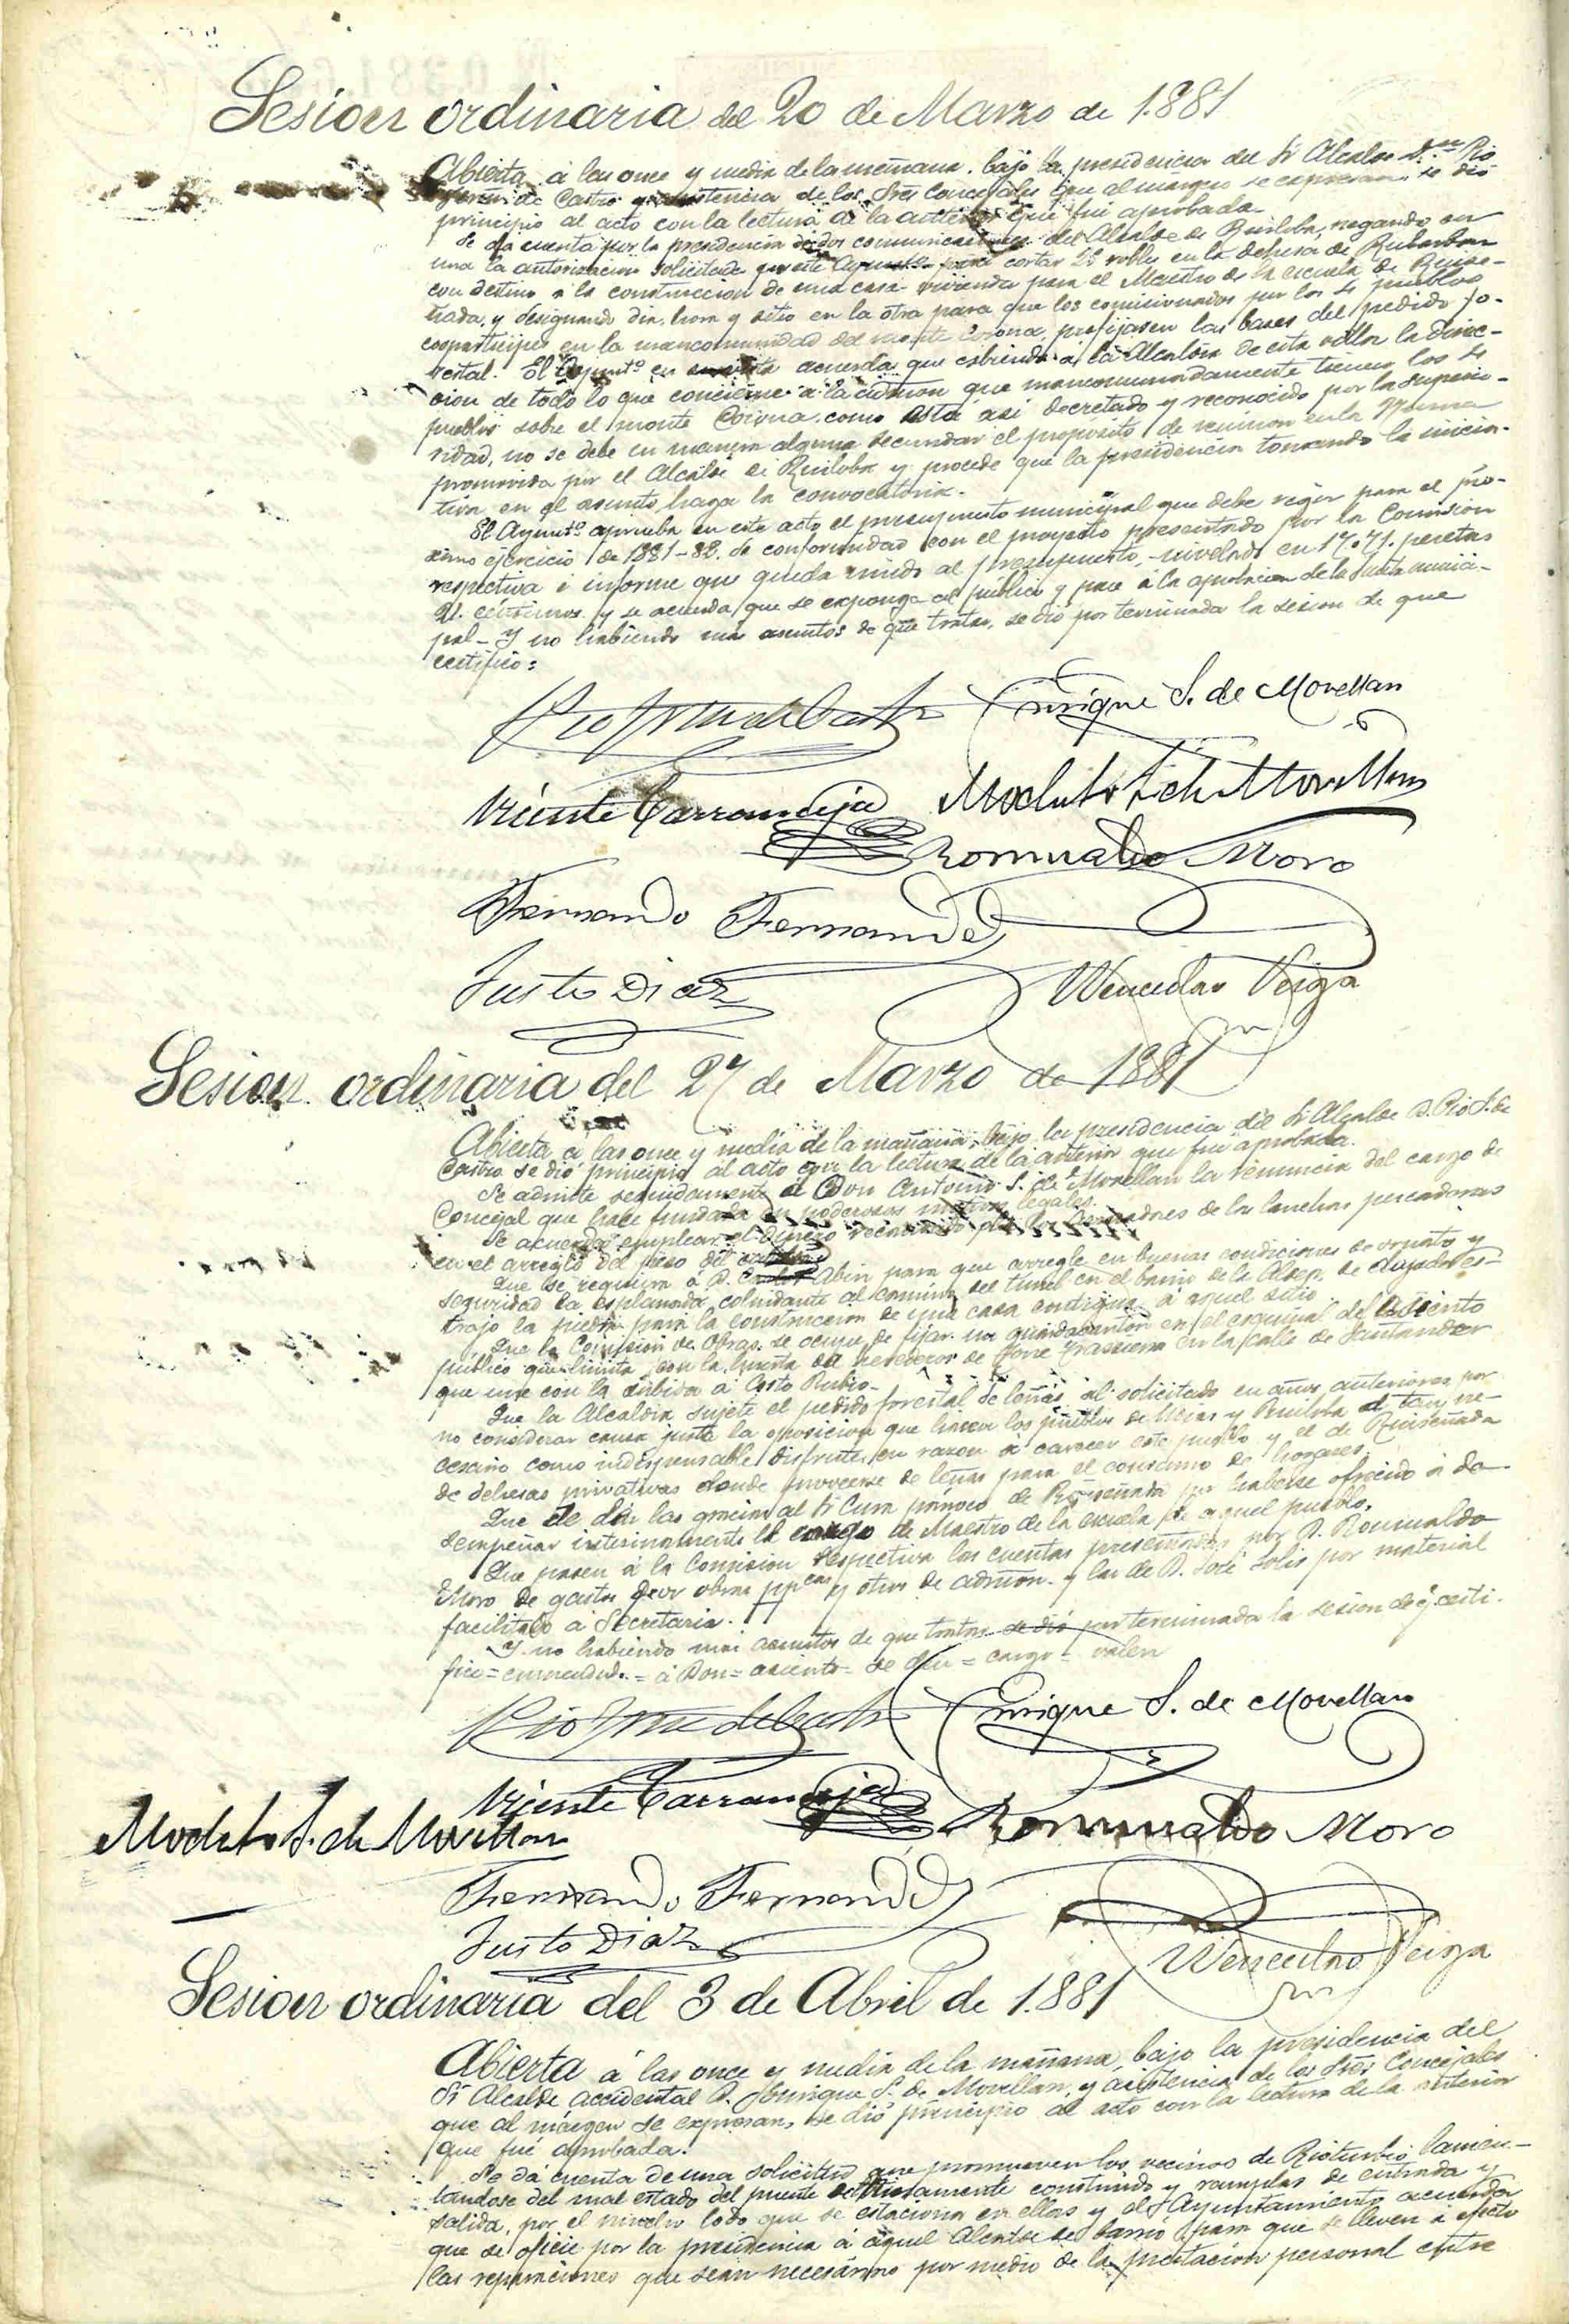 Sesion ordinaria del 20 de Marzo de 1.881
Abierta á las once y media de la mañana, bajo la presidencia del Sr Alcalde Dn Pio
de Castro y asistencia de los Sres Concejales que al margen se expresan, se dió
principio al acto con la lectura de la anterior que fué aprobada.
Se da cuenta por la presidencia de dos comunicaciones del Alcalde de Ruiloba, negando en
una la autorizacion solicitada por este Ayuntº para cortar 25 robles en la dehesa de
con destino a la construccion de una casa-vivienda para el Maestro de la escuela de Ruise-
ñada, y designando dia, hora y sitio en la otra para que los comisionados por los 4 pueblos
copartícipes en la mancomunidad del monte Corona, prefijasen las bases del pedido fo-
restal. El Ayuntº en su vista acuerda que á la Alcaldia de esta villa la direc-
cion de todo lo que concierne á la admon que mancomunadamente tienen los 4
pueblos sobre el monte Corona, como está asi decretado y reconocido por la superio-
ridad, no se debe en manera alguna secundar el propósito de reunion en la
promovida por el Alcalde de Ruiloba y procede que la presidencia tomando la inicia-
tiva en el asunto, haga la convocatoria.
El Ayuntº aprueba en este acto el presupuesto municipal que debe regir para el pró-
ximo ejercicio de 1881-82. de conformidad con el proyecto presentado por la Comision
respectiva é informe que queda unido al presupuesto, nivelado en pesetas
centimos y se acuerda que se exponga al público y pase á la aprobacion de la Junta munici-
pal. Y no habiendo más asuntos de que tratar, se dió por terminada la sesion de que
certifico:
Enrique S. de Movellan
Vicente Carrandeja Modesto S. de Movellan
Romualdo Moro
Fernando Fernandez
Justo Diaz Wenceslao Veiga
Sesion ordinaria del 27 de Marzo de 1881
Abierta á las once y media de la mañana, bajo la presidencia del Sr Alcalde D. Pio S. de
Castro se dió principio al acto con la lectura de la anterior que fué aprobada.
Se admite seguidamente á Don Antonio S. de Movellan la renuncia del cargo de
Concejal que hace fundada en poderosos motivos legales.
Se acuerda emplear el dinero recaudado por los de las lanchas pescadoras
en el arreglo del piso del
Que se requiera á D. Carlos Abin para que arregle en buenas condiciones de ornato y
seguridad la esplanada colindante al camino del tunel en el barrio de la de
trajo la piedra para la construccion de una casa contigua á aquel sitio.
Que la Comision de Obras se ocupe de fijar un guardacanton en el esquinal del asiento
público que limita con la huerta de herederos de Jorre en la calle de Santander
que une con la subida á Casto Rubio.
Que la Alcaldia sujete el pedido forestal de leñas al solicitado en años anteriores por
no considerar causa justa la oposicion que hacen los pueblos de Udias y Ruiloba al tan ne-
cesario como indispensable disfrute en razon á carecer este pueblo y el de Ruiseñada
de dehesas privativas donde proveerse de leñas para el consumo de hogares.
Que se den las gracias al Sr Cura párroco de Ruiseñada por haberse ofrecido á de-
sempeñar interinamente el cargo de Maestro de la escuela de aquel pueblo.
Que pasen á la Comision respectiva las cuentas presentadas por D. Romualdo
Moro de gastos por obras ppcas y otros de admon. y las de D. José Solis por material
facilitado á Secretaria.
Y no habiendo más asuntos de que tratar se dió por terminada la sesion de q. certi-
fico = enmendado = á Don = asiento = se den = cargo = valen
Enrique S. de Movellan
Vicente Carrandeja
Modesto S. de Movellan Romualdo Moro
Fernando Fernandez
Justo Diaz Wenceslao Veiga
Sesion ordinaria del 3 de Abril de 1.881
Abierta á las once y media de la mañana, bajo la presidencia del
Sr Alcalde accidental D. Enrique S. de Movellan, y asistencia de los Sres Concejales
que al márgen se expresan, se dió principio al acto con la lectura de la anterior
que fué aprobada.
Se dá cuenta de una solicitud que promueven los vecinos de Rioturbio lamen-
tandose del mal estado del puente construido y rampas de entrada y
salida, por el mucho lodo que se estaciona en ellas y el Ayuntamiento acuerda
que se oficie por la presidencia á aquel Alcalde de barrio para que se lleven á efecto
las reparaciones que sean necesarias por medio de la prestacion personal entre